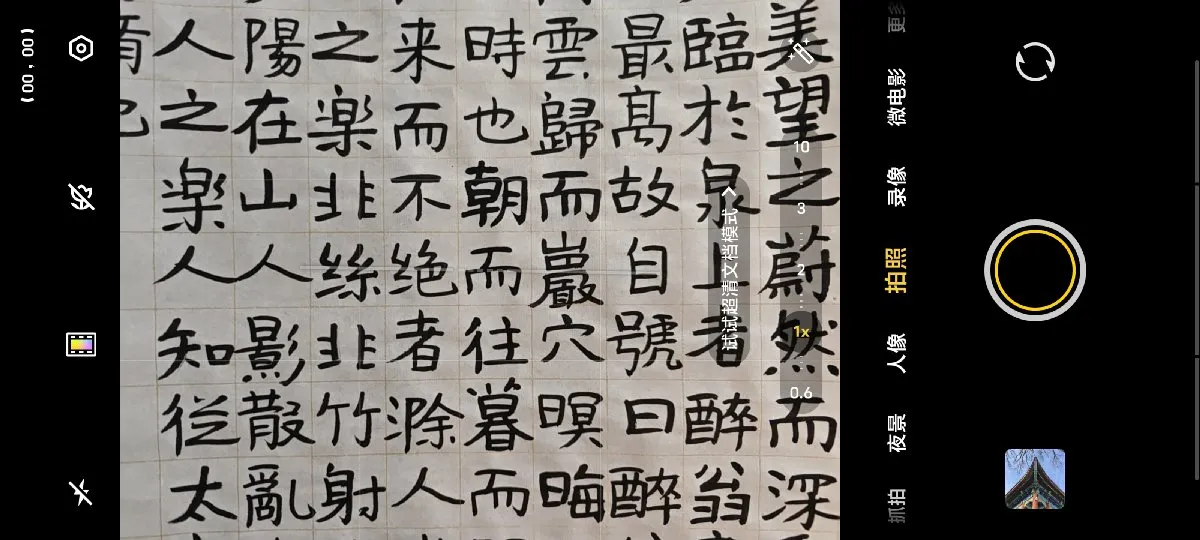 美望之蔚然而深
臨於泉上者醉翁
最髙故自號曰醉
雲歸而巖穴暝晦
時也朝而往暮而
来而不绝者滁人
之楽非絲非竹射
陽在山人影散亂
人之楽人知從太
(00 , 00)
试试超清文档模式
10
3
2
1x
0.6
抓拍
夜景
人像
拍照
录像
微电影
更多